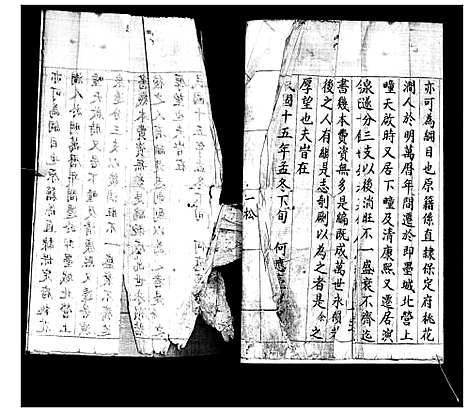 亦可為綱目也原籍係直隸保定府桃花
澗人於明萬曆年間遷於即墨城北營上
疃天啟時又居下疃及清康熙又遷居演
泉遂分三支以後消旺不一盛衰不齊迄
書幾本費資無多是編既成萬世永賴
後之人有繼是志剞劂以為之者是余之
厚望也夫旹在
民國十五年孟冬下旬 何應
一松